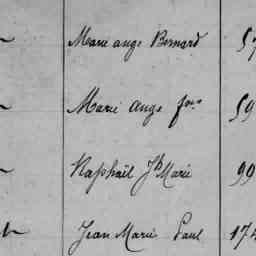 Marie ange Bernard 57
Marie Ange fois 59
Raphaël Jh Marie 99
Jean Marie Paul 174